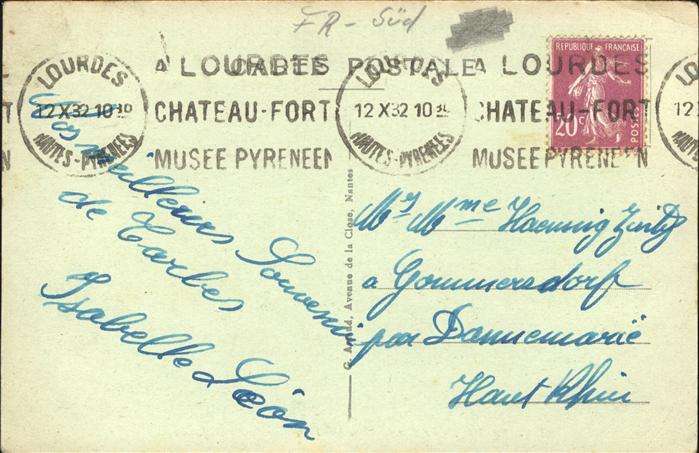 FR - Süd
LOURDES
12 X 32 10
HAUTES-PYRENEES
A LOURDES
CHATEAU-FORT
MUSEE PYRENEEN
CARTE POSTALE
LOURDES
12 X 32 10
HAUTES-PYRENEES
A LOURDES
CHATEAU-FORT
MUSEE PYRENEEN
REPUBLIQUE FRANÇAISE
20c
POSTES
meilleurs Souvenirs
de Tarbes
Isabelle Léon
Avenue de la Close, Nantes
Mr Mme
a Gommersdorf
par Dannemarie
Haut Rhin